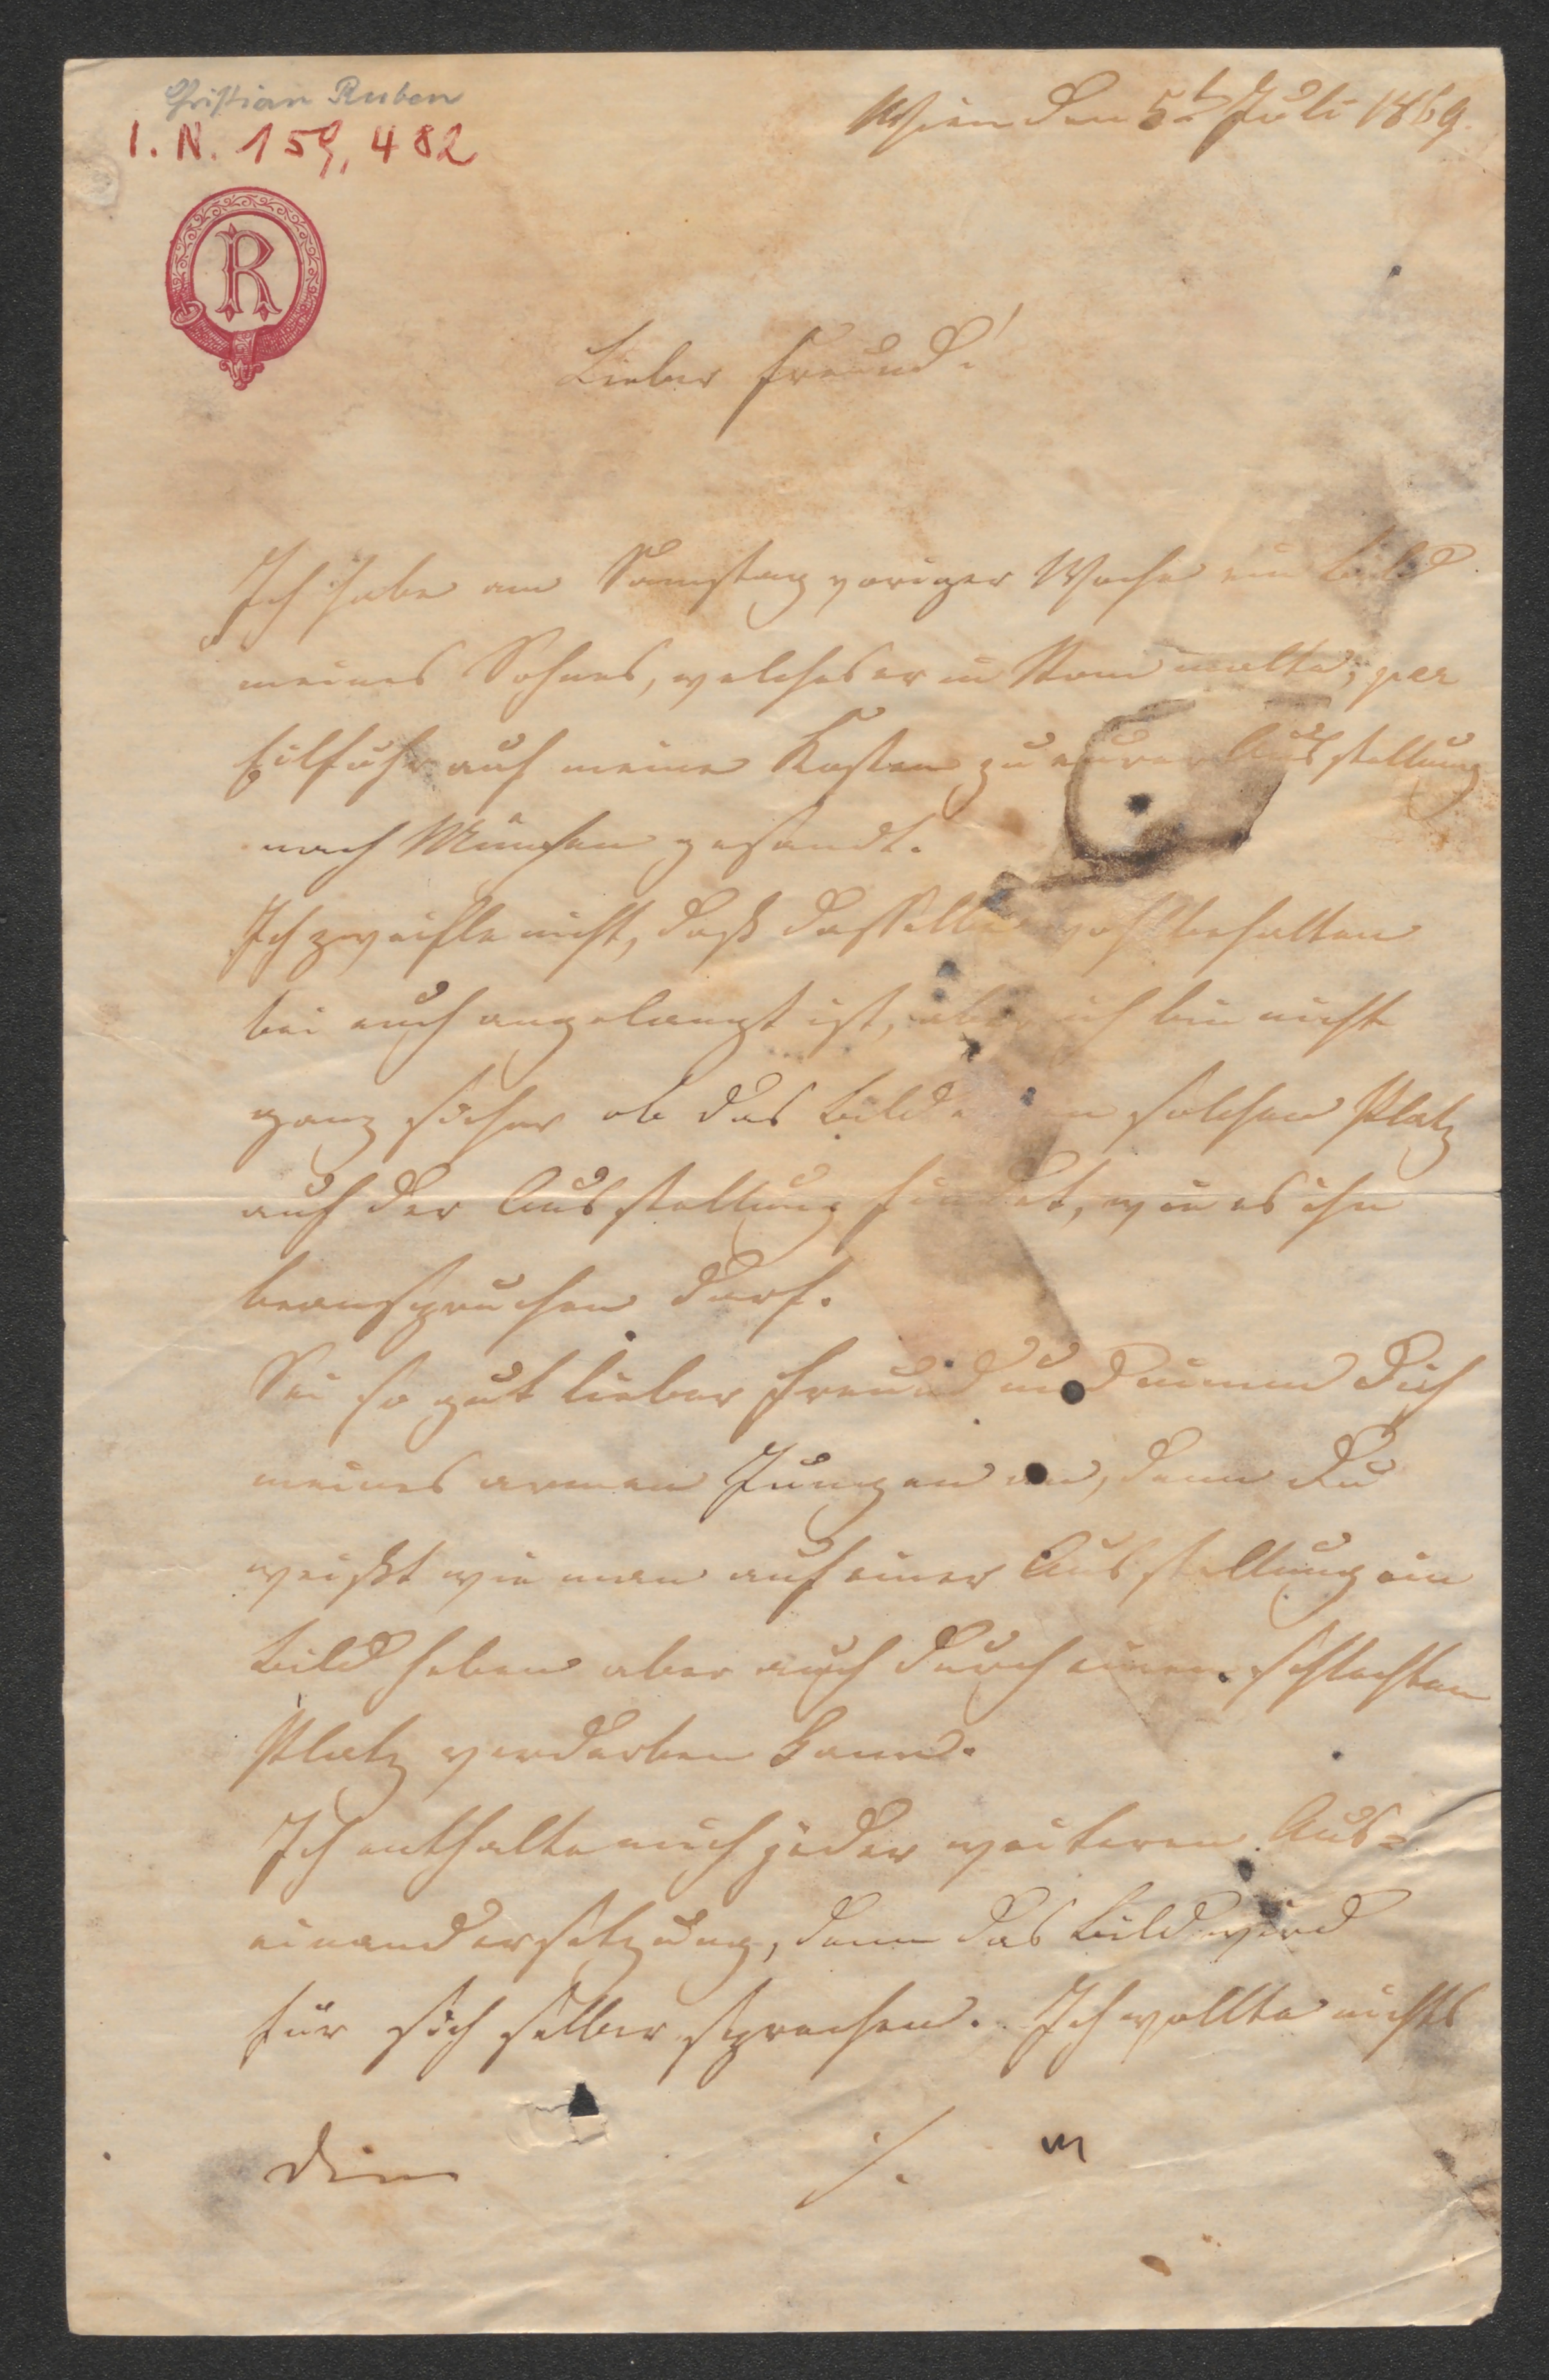 Christian Ruben
I. N. 159,482
Wien den 5t Juli 1869.
R
Lieber Freund!
Ich habe am Samstag voriger Woche ein Bild
meines Sohnes, welches er in Rom malte, per
Eilfuhr auf meine Kosten zu eurer Ausstellung
nach München gesandt.
Ich zweifle nicht, daß dasselbe wohlbehalten
bei euch angelangt ist, aber ich bin nicht
ganz sicher ob das Bild einen solchen Platz
auf der Ausstellung findet, wie es ihn
beanspruchen darf.
Sei so gut lieber Freund und nimm Dich
meines armen Jungen an, denn Du
weißt wie man auf einer Ausstellung ein
Bild heben aber auch durch einen schlechten
Platz verderben kann.
Ich enthalte mich jeder weiteren Aus=
einandersetzung, denn das Bild wird
für sich selber sprechen. Ich wollte nichts
./.